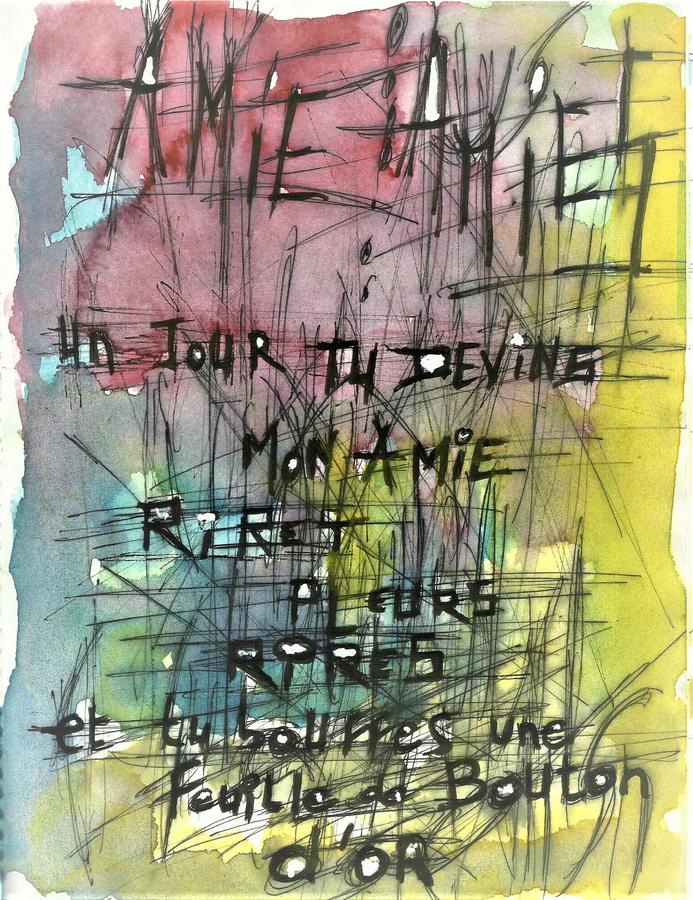 AMIE AMIES
Un JOUR TU DEVINS
MON AMIE
RIRET
PLEURS
APRES
et tu souffres une
Feuille de Bouton
d'OR